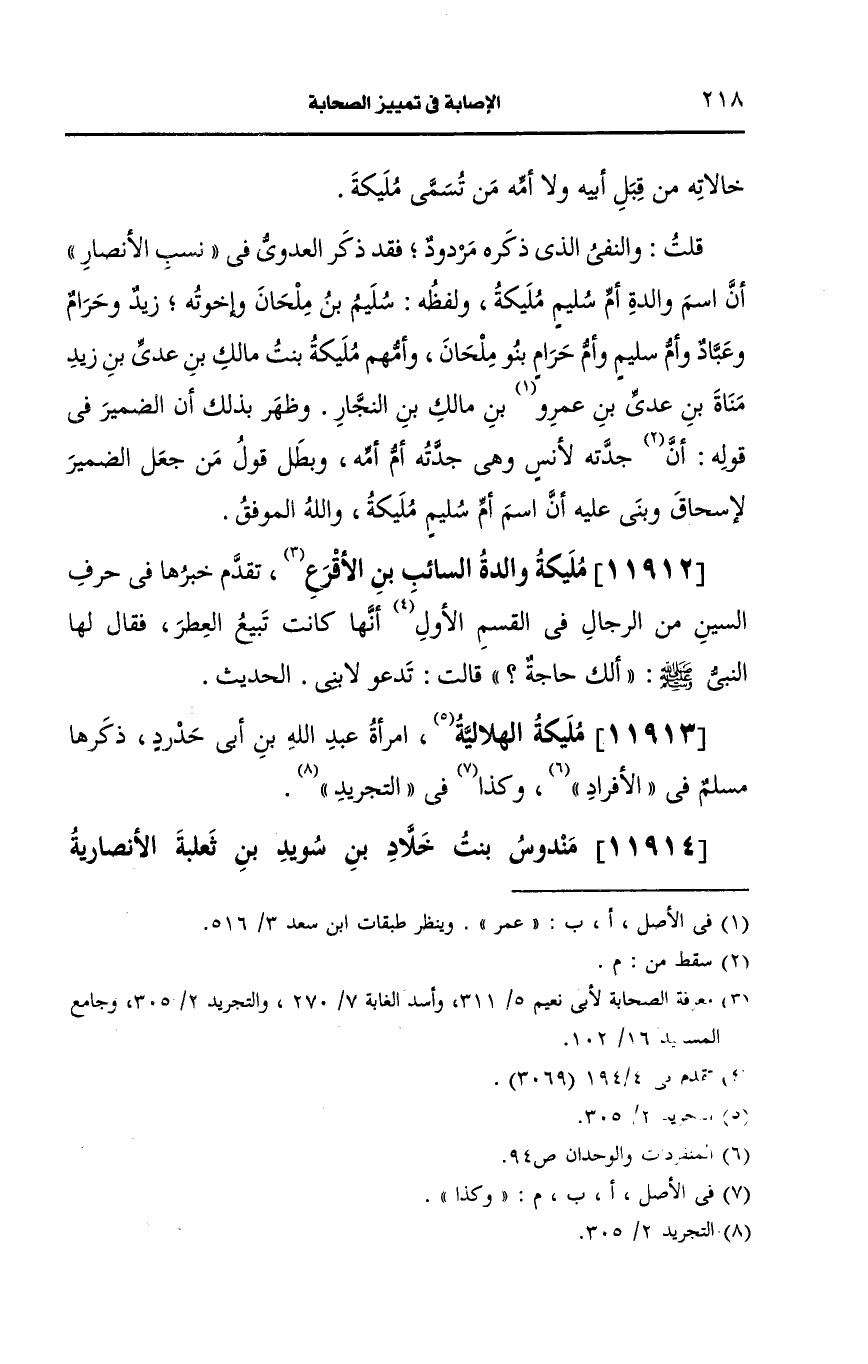 ٢١٨ الإصابة فى تمييز الصحابة
خالاتِه من قِبَلِ أبيه ولا أمِّه مَن تُسَمَّى مُلَيكةَ .
قلتُ : والنفىُ الذى ذكَره مَرْدودٌ ؛ فقد ذكَر العدوىُّ فى « نسبِ الأنصارِ »
أنَّ اسمَ والدةِ أمِّ سُليمٍ مُلَيكةُ ، ولفظُه : سُلَيمُ بنُ مِلْحَانَ وإخوتُه ؛ زيدٌ وحَرَامٌ
وعَبَّادٌ وأمُّ سليمٍ وأمُّ حَرَامٍ بنُو مِلْحَانَ ، وأمُّهم مُلَيكةُ بنتُ مالكِ بنِ عدىِّ بنِ زيدِ
مَنَاةَ بنِ عدىِّ بنِ عمرِو(١) بنِ مالكِ بنِ النجَّارِ . وظهَر بذلك أن الضميرَ فى
قولِه : أنَّ(٢) جدَّته لأنسٍ وهى جدَّتُه أمُّ أمِّه ، وبطَل قولُ مَن جعَل الضميرَ
لإسحاقَ وبنَى عليه أنَّ اسمَ أمِّ سُليمٍ مُلَيكةُ ، واللهُ الموفقُ .
[١١٩١٢] مُلَيكةُ والدةُ السائبِ بنِ الأقْرَعِ(٣) ، تقدَّم خبرُها فى حرفِ
السينِ من الرجالِ فى القسمِ الأولِ(٤) أنَّها كانت تَبيعُ العِطرَ ، فقال لها
النبىُّ ﷺ : « ألك حاجةٌ ؟ » قالت : تَدعو لابنِى . الحديث .
[١١٩١٣] مُلَيكةُ الهلاليَّةُ(٥) ، امرأةُ عبدِ اللهِ بنِ أبى حَدْردٍ ، ذكَرها
مسلمٌ فى « الأفرادِ »(٦) ، وكذا(٧) فى « التجريدِ »(٨) .
[١١٩١٤] مَنْدوسُ بنتُ خَلَّادِ بنِ سُويدِ بنِ ثَعلبةَ الأنصاريةُ
(١) فى الأصل ، أ ، ب : « عمر » . وينظر طبقات ابن سعد ٣/ ٥١٦.
(٢) سقط من : م .
(٣) معرفة الصحابة لأبى نعيم ٥/ ٣١١، وأسد الغابة ٧/ ٢٧٠ ، والتجريد ٢/ ٣٠٥، وجامع
المسانيد ١٦/ ١٠٢.
(٤) تقدم فى ١٩٤/٤ (٣٠٦٩) .
(٥) التجريد ٢/ ٣٠٥.
(٦) المنفردات والوحدان ص٩٤.
(٧) فى الأصل ، أ ، ب ، م : « وكذا » .
(٨) التجريد ٢/ ٣٠٥.